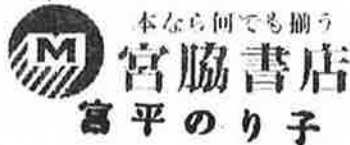 本なら何でも揃う
M
宮脇書店
富平のり子